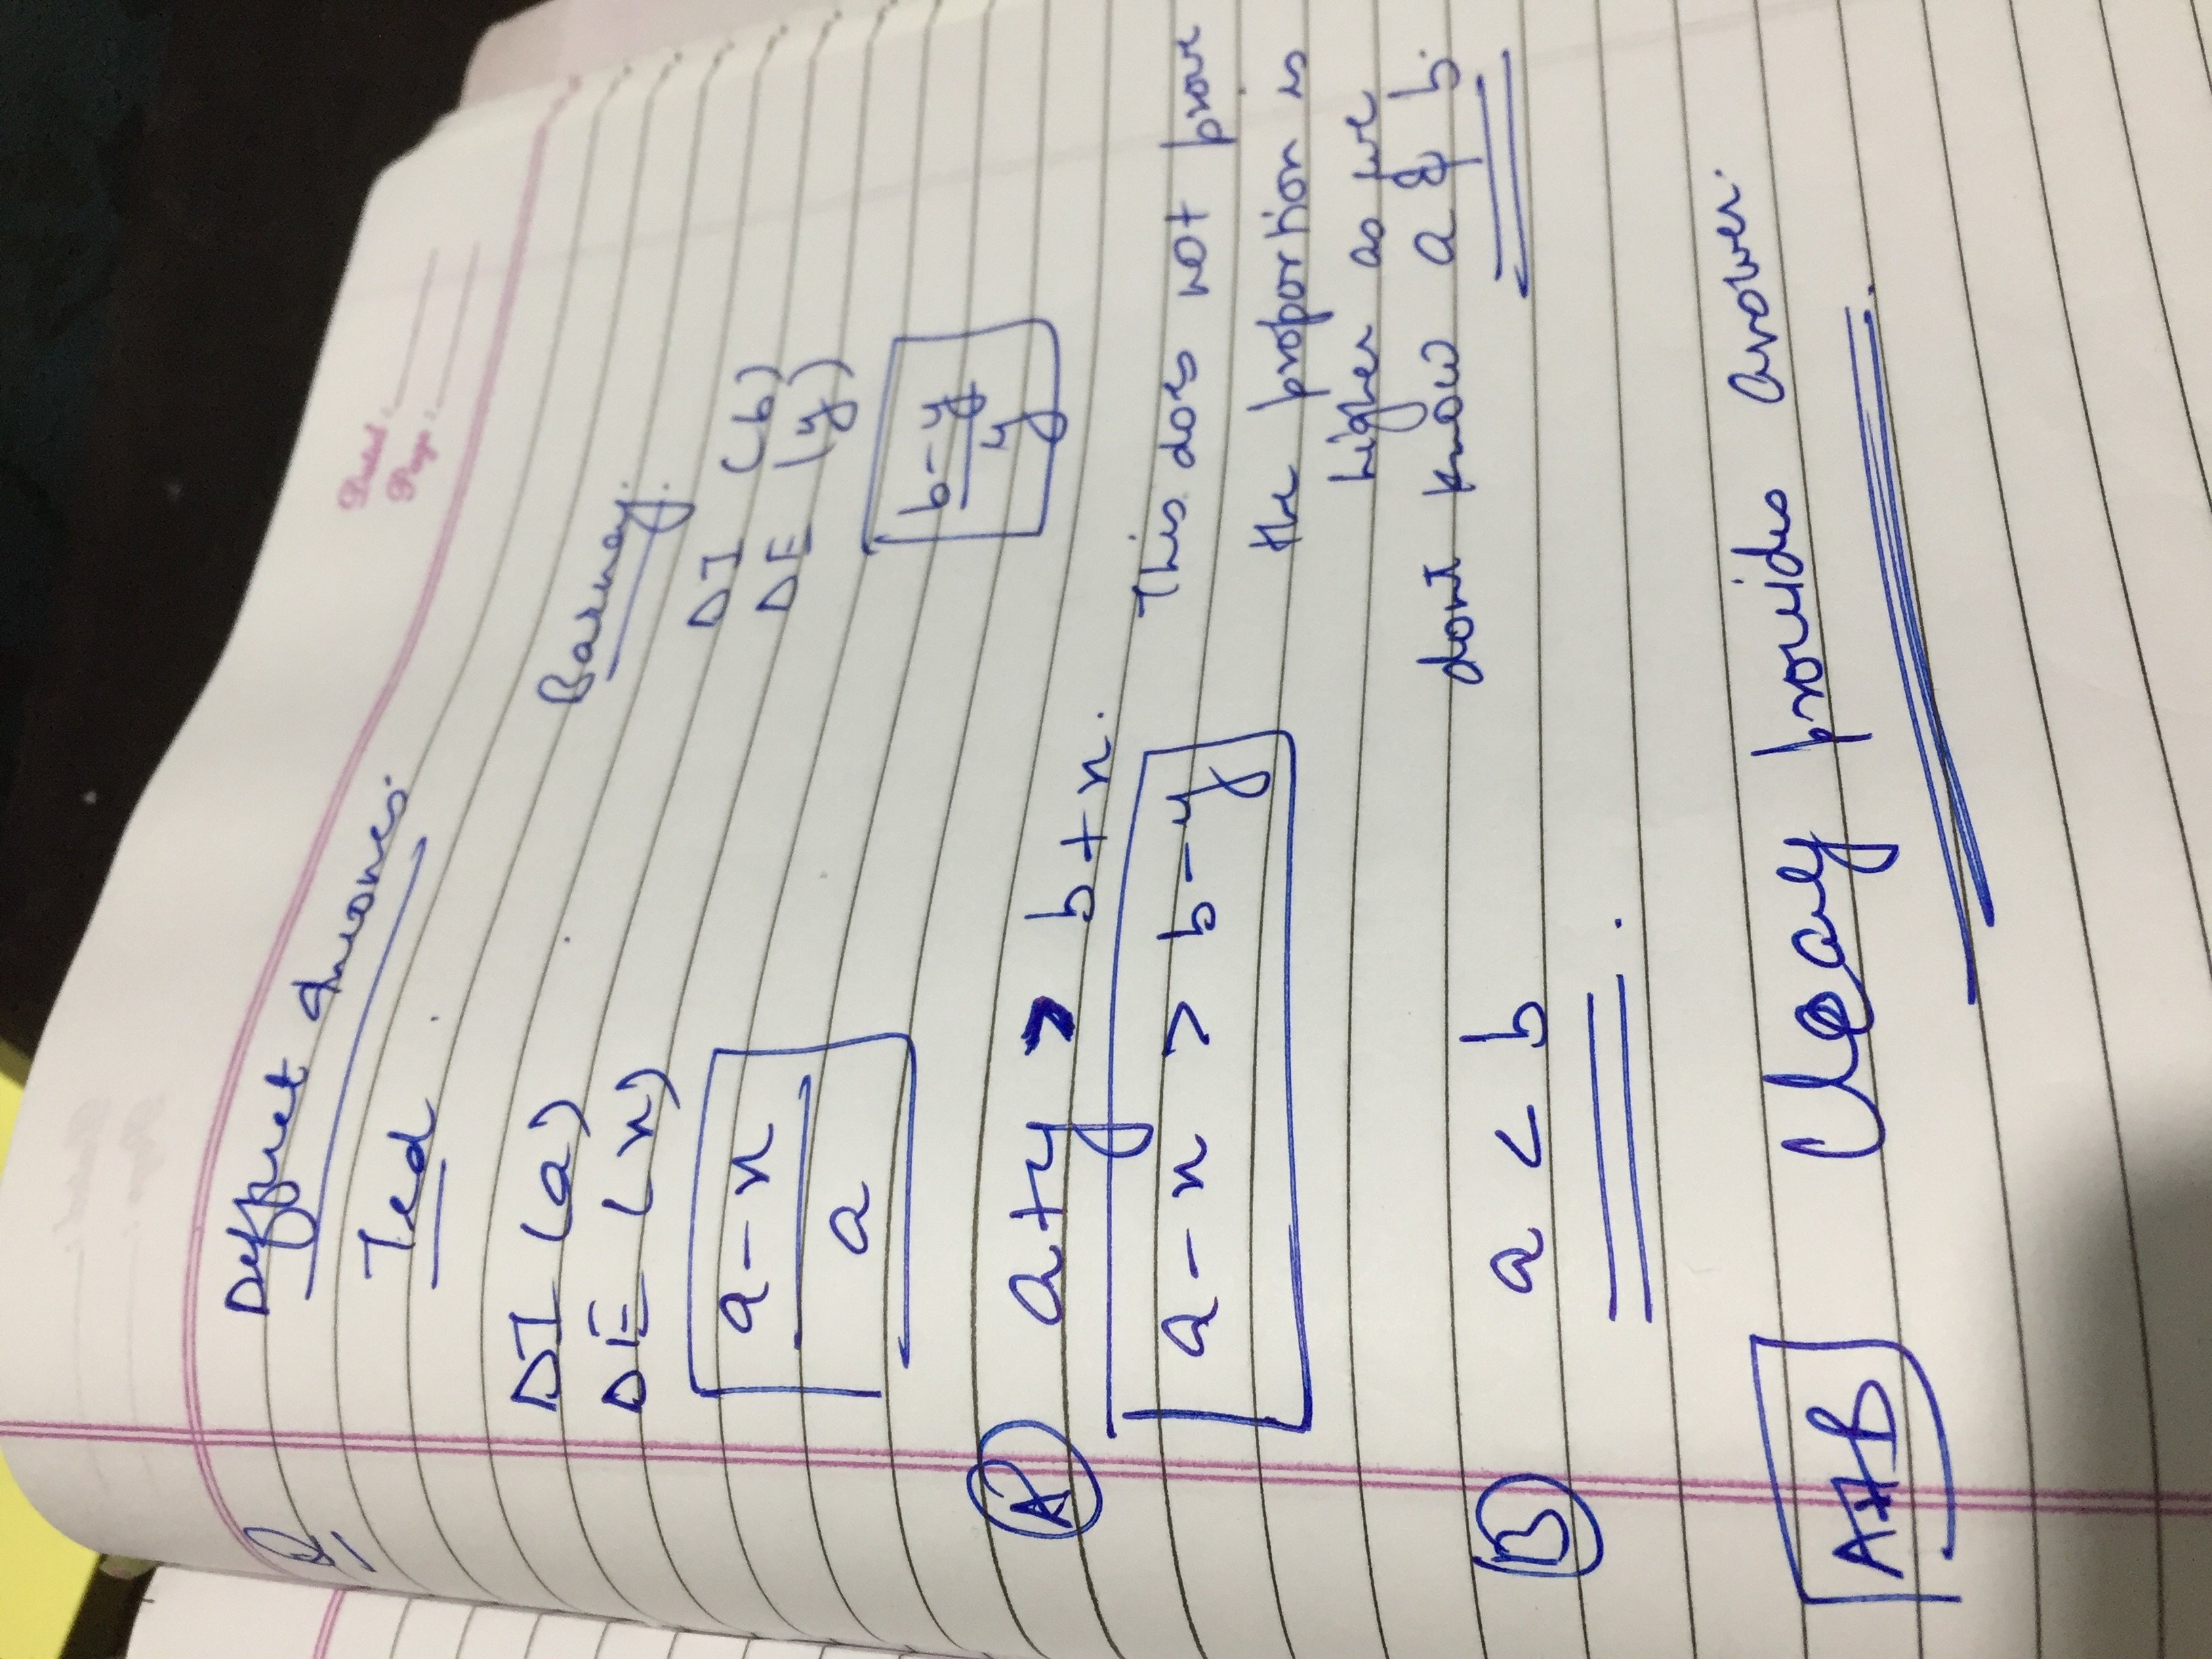 Date: ____
Page: ____
Q1 Deffret Incomes.
Ted Barney.
DI (a) DI (b)
DE (x) DE (y)
a-x/a b-y/y
A a+y > b+x.
a-x > b-y This does not prove
the proportion is
higher as we
dont know a & b.
B a < b
A+B Clealy provides answer.